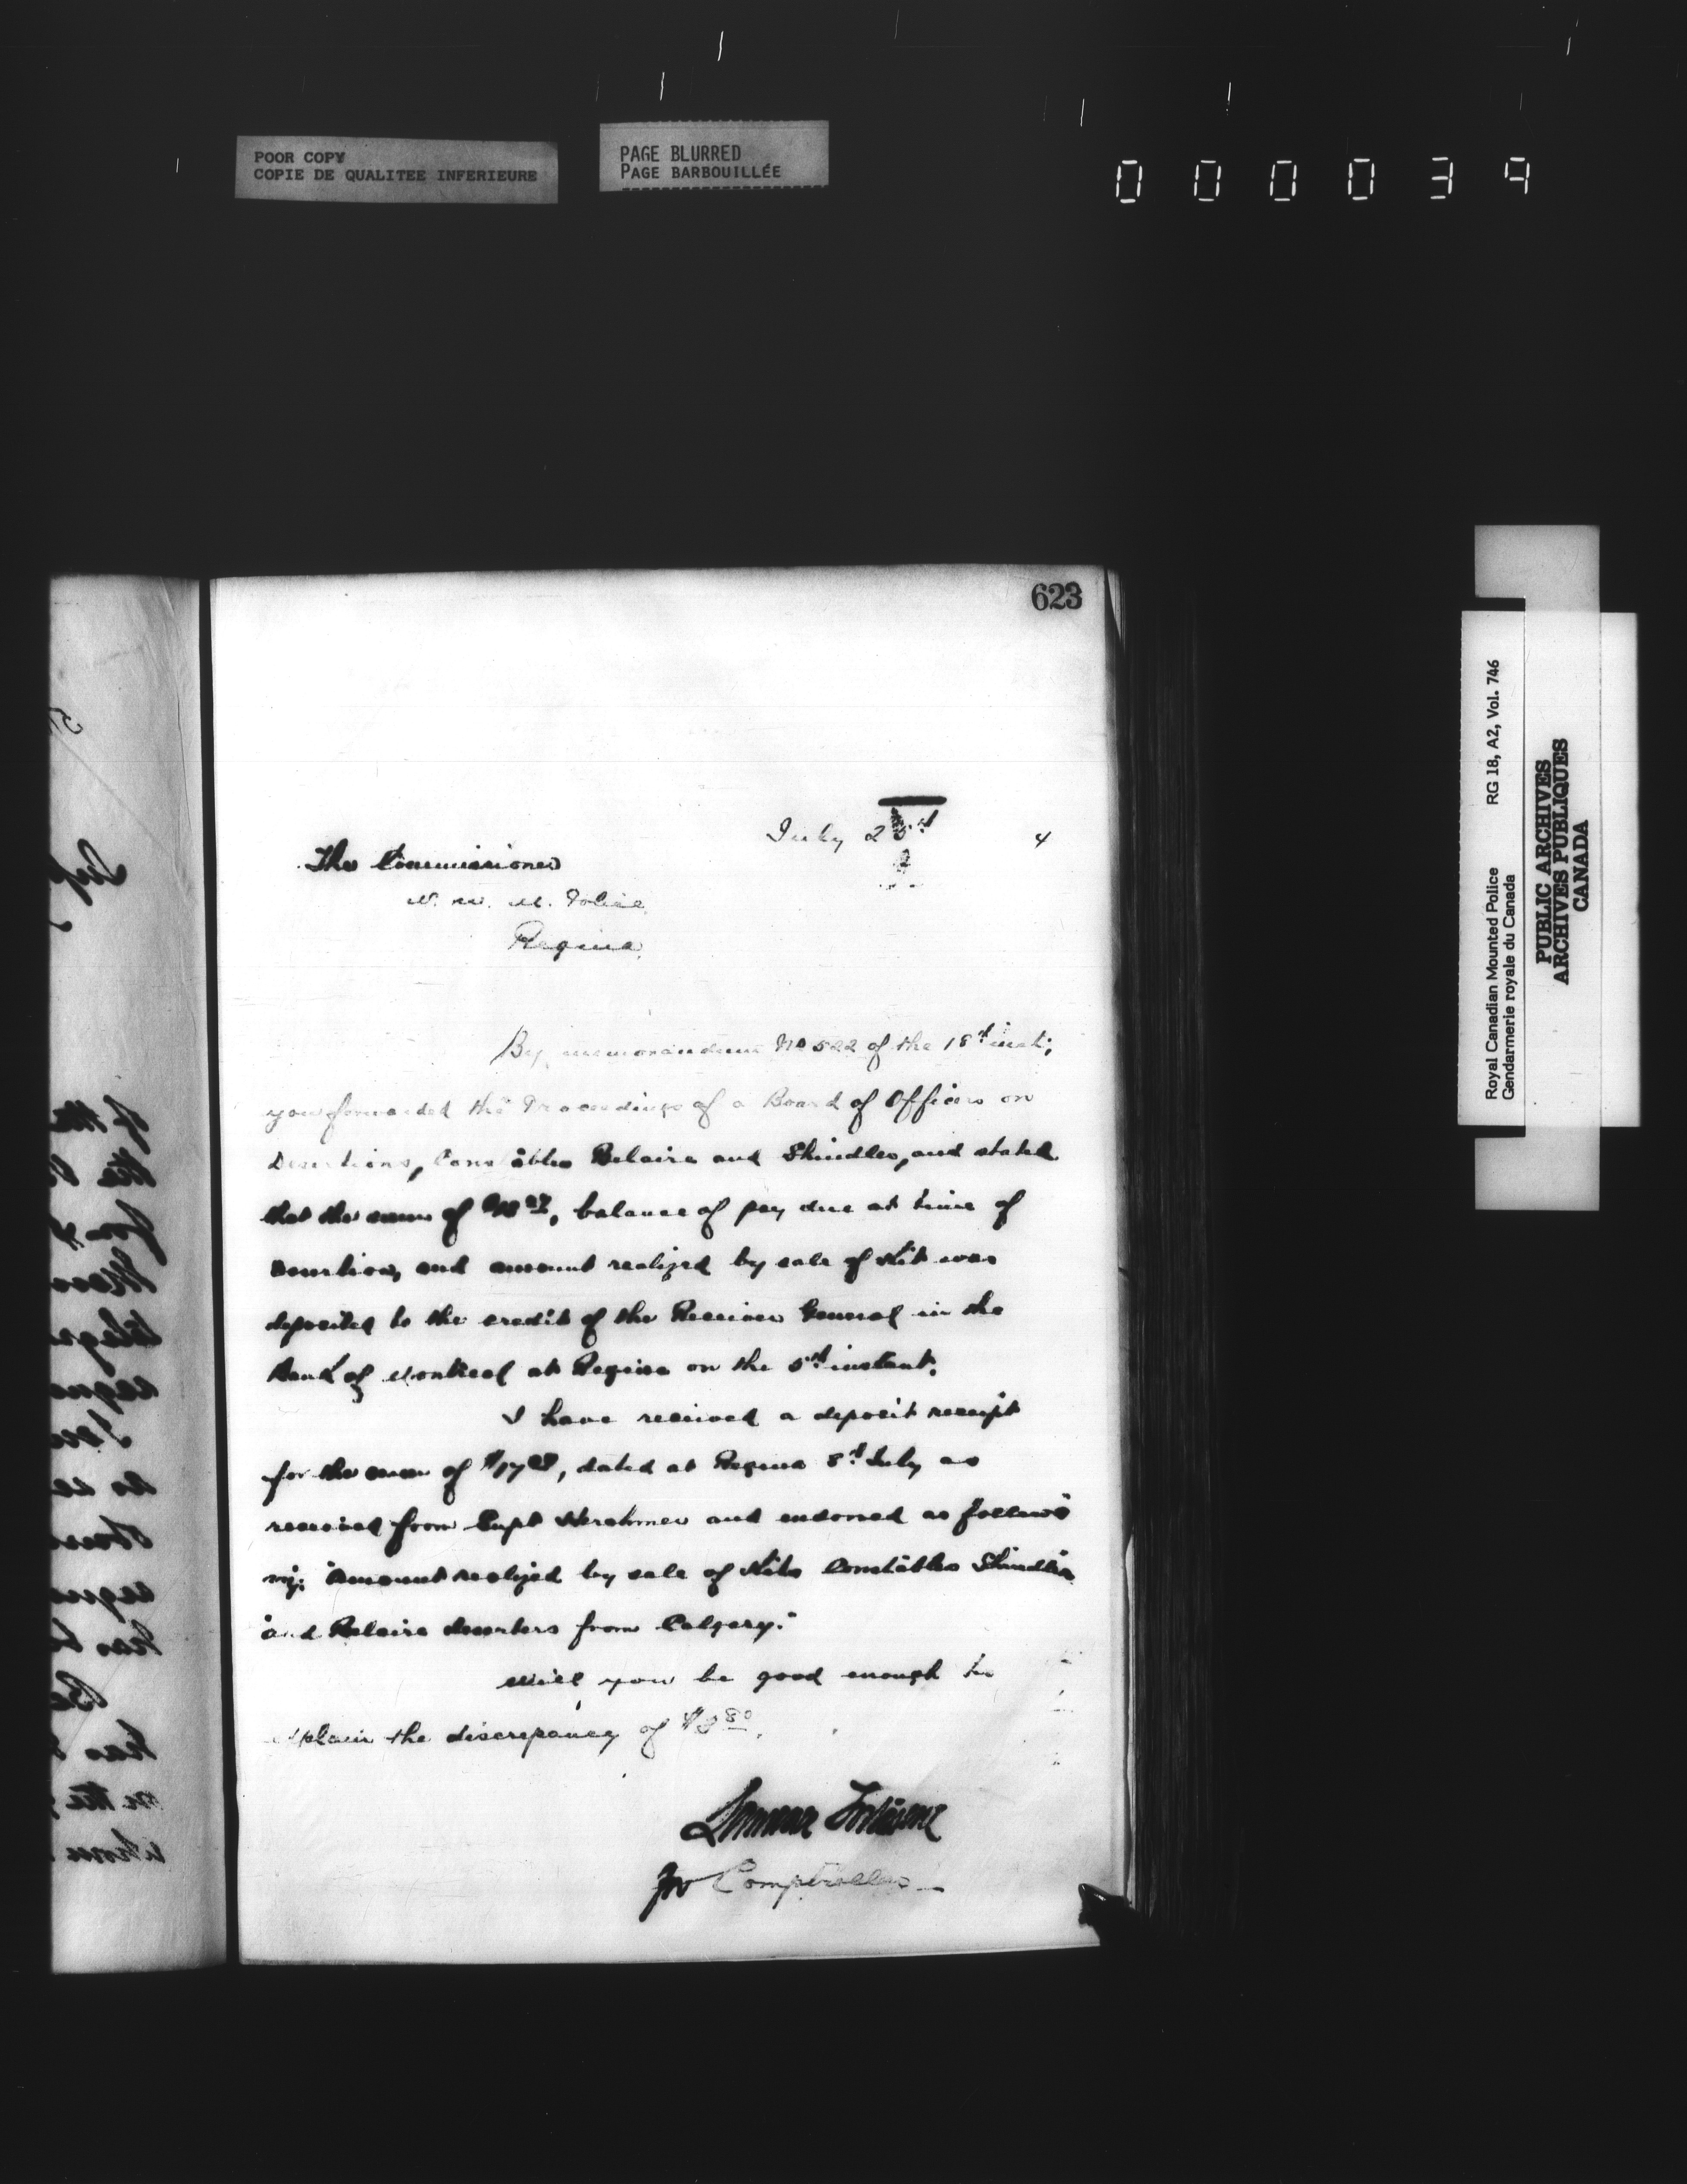 POOR COPY
COPIE DE QUALITEE INFERIEURE
PAGE BLURRED
PAGE BARBOUILLÉE
0 0 0 0 3 9
623
July 2
4
The Commissioner
N. W. M. Police
Regina.
By memorandum No 522 of the 18th inst;
you forwarded the Proceedings of a Board of Officers on
Desertions, Constables Belaire and Shindler, and stated
that the sum of balance of pay due at time of
desertion, and amount realized by sale of Kit was
deposited to the credit of the Receiver General in the
Bank of Montreal at Regina on the 5th instant.
I have received a deposit receipt
for the sum of dated at Regina 5th July as
received from Supt Herchmer and endorsed as follows
viz: "Amount realized by sale of Kits Constables Shindler
"and Belaire deserters from Calgary."
Will you be good enough to
explain the discrepancy of
for Comptroller
Royal Canadian Mounted Police RG 18, A2, Vol. 746
Gendarmerie royale du Canada
PUBLIC ARCHIVES
ARCHIVES PUBLIQUES
CANADA